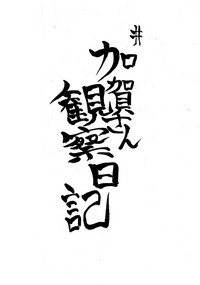 井
加賀さん
観察日記